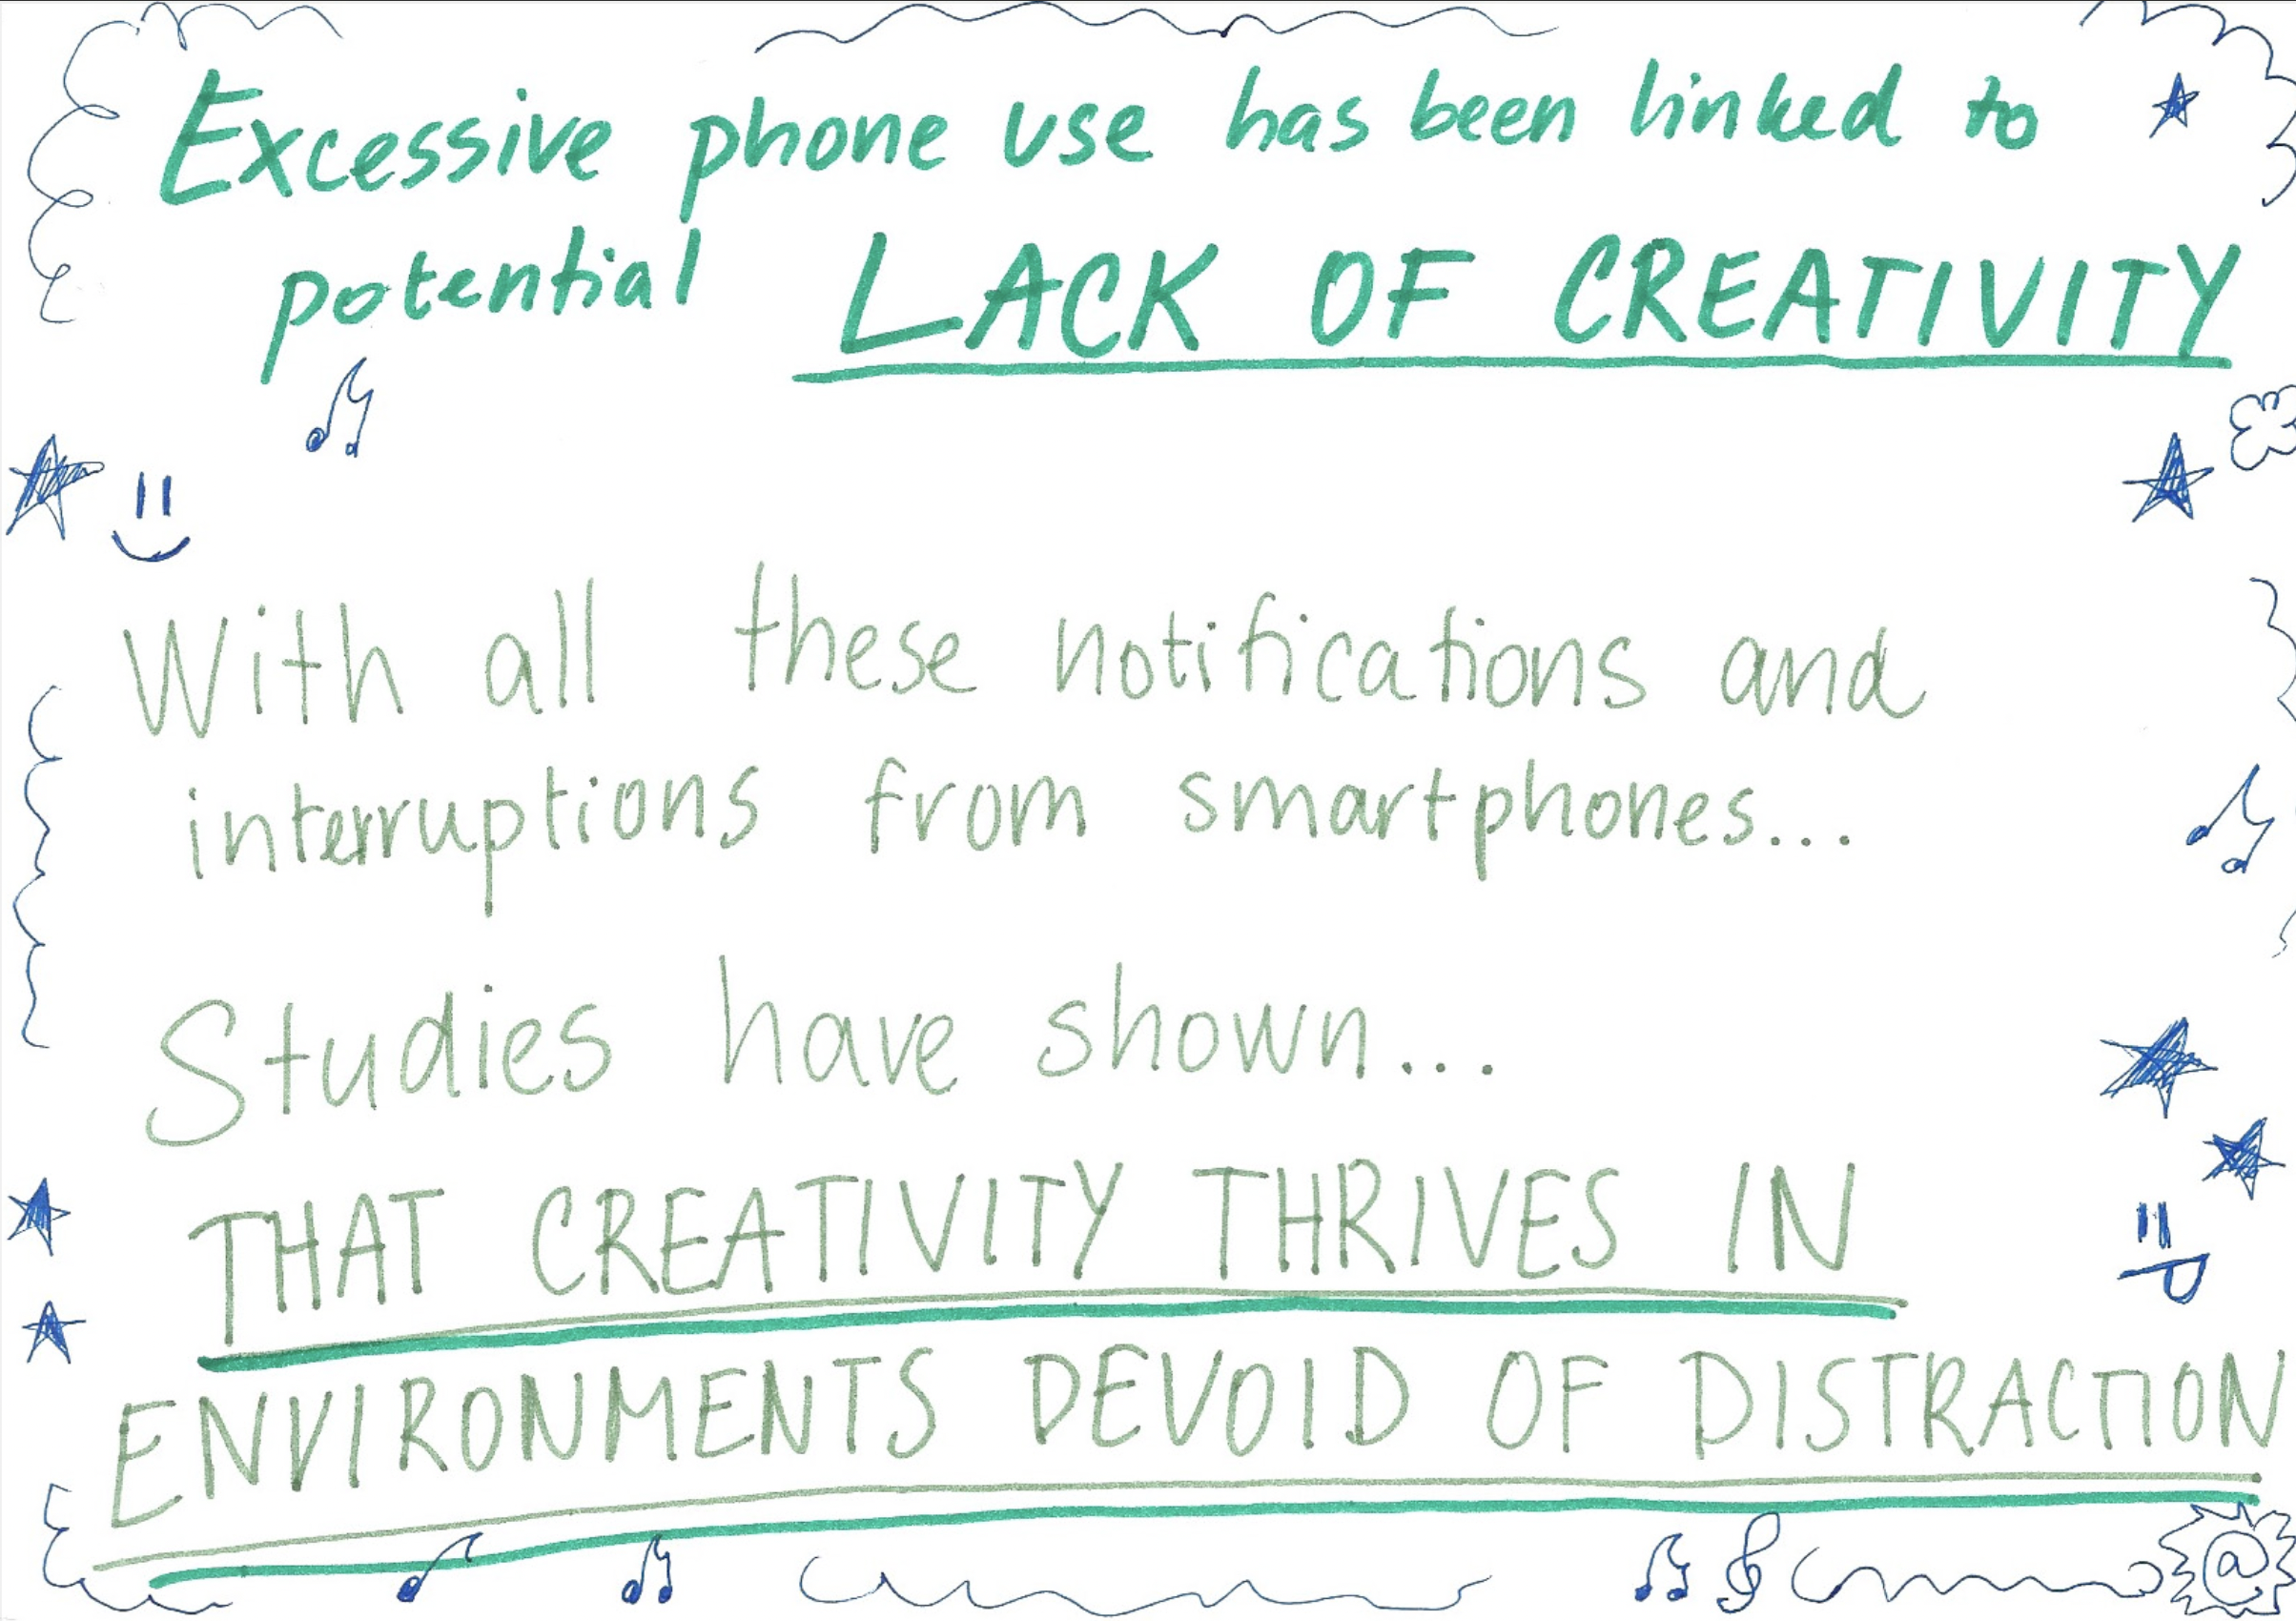 Excessive phone use has been linked to
potential LACK OF CREATIVITY
With all these notifications and
interruptions from smartphones...
Studies have shown...
THAT CREATIVITY THRIVES IN
ENVIRONMENTS DEVOID OF DISTRACTION
@